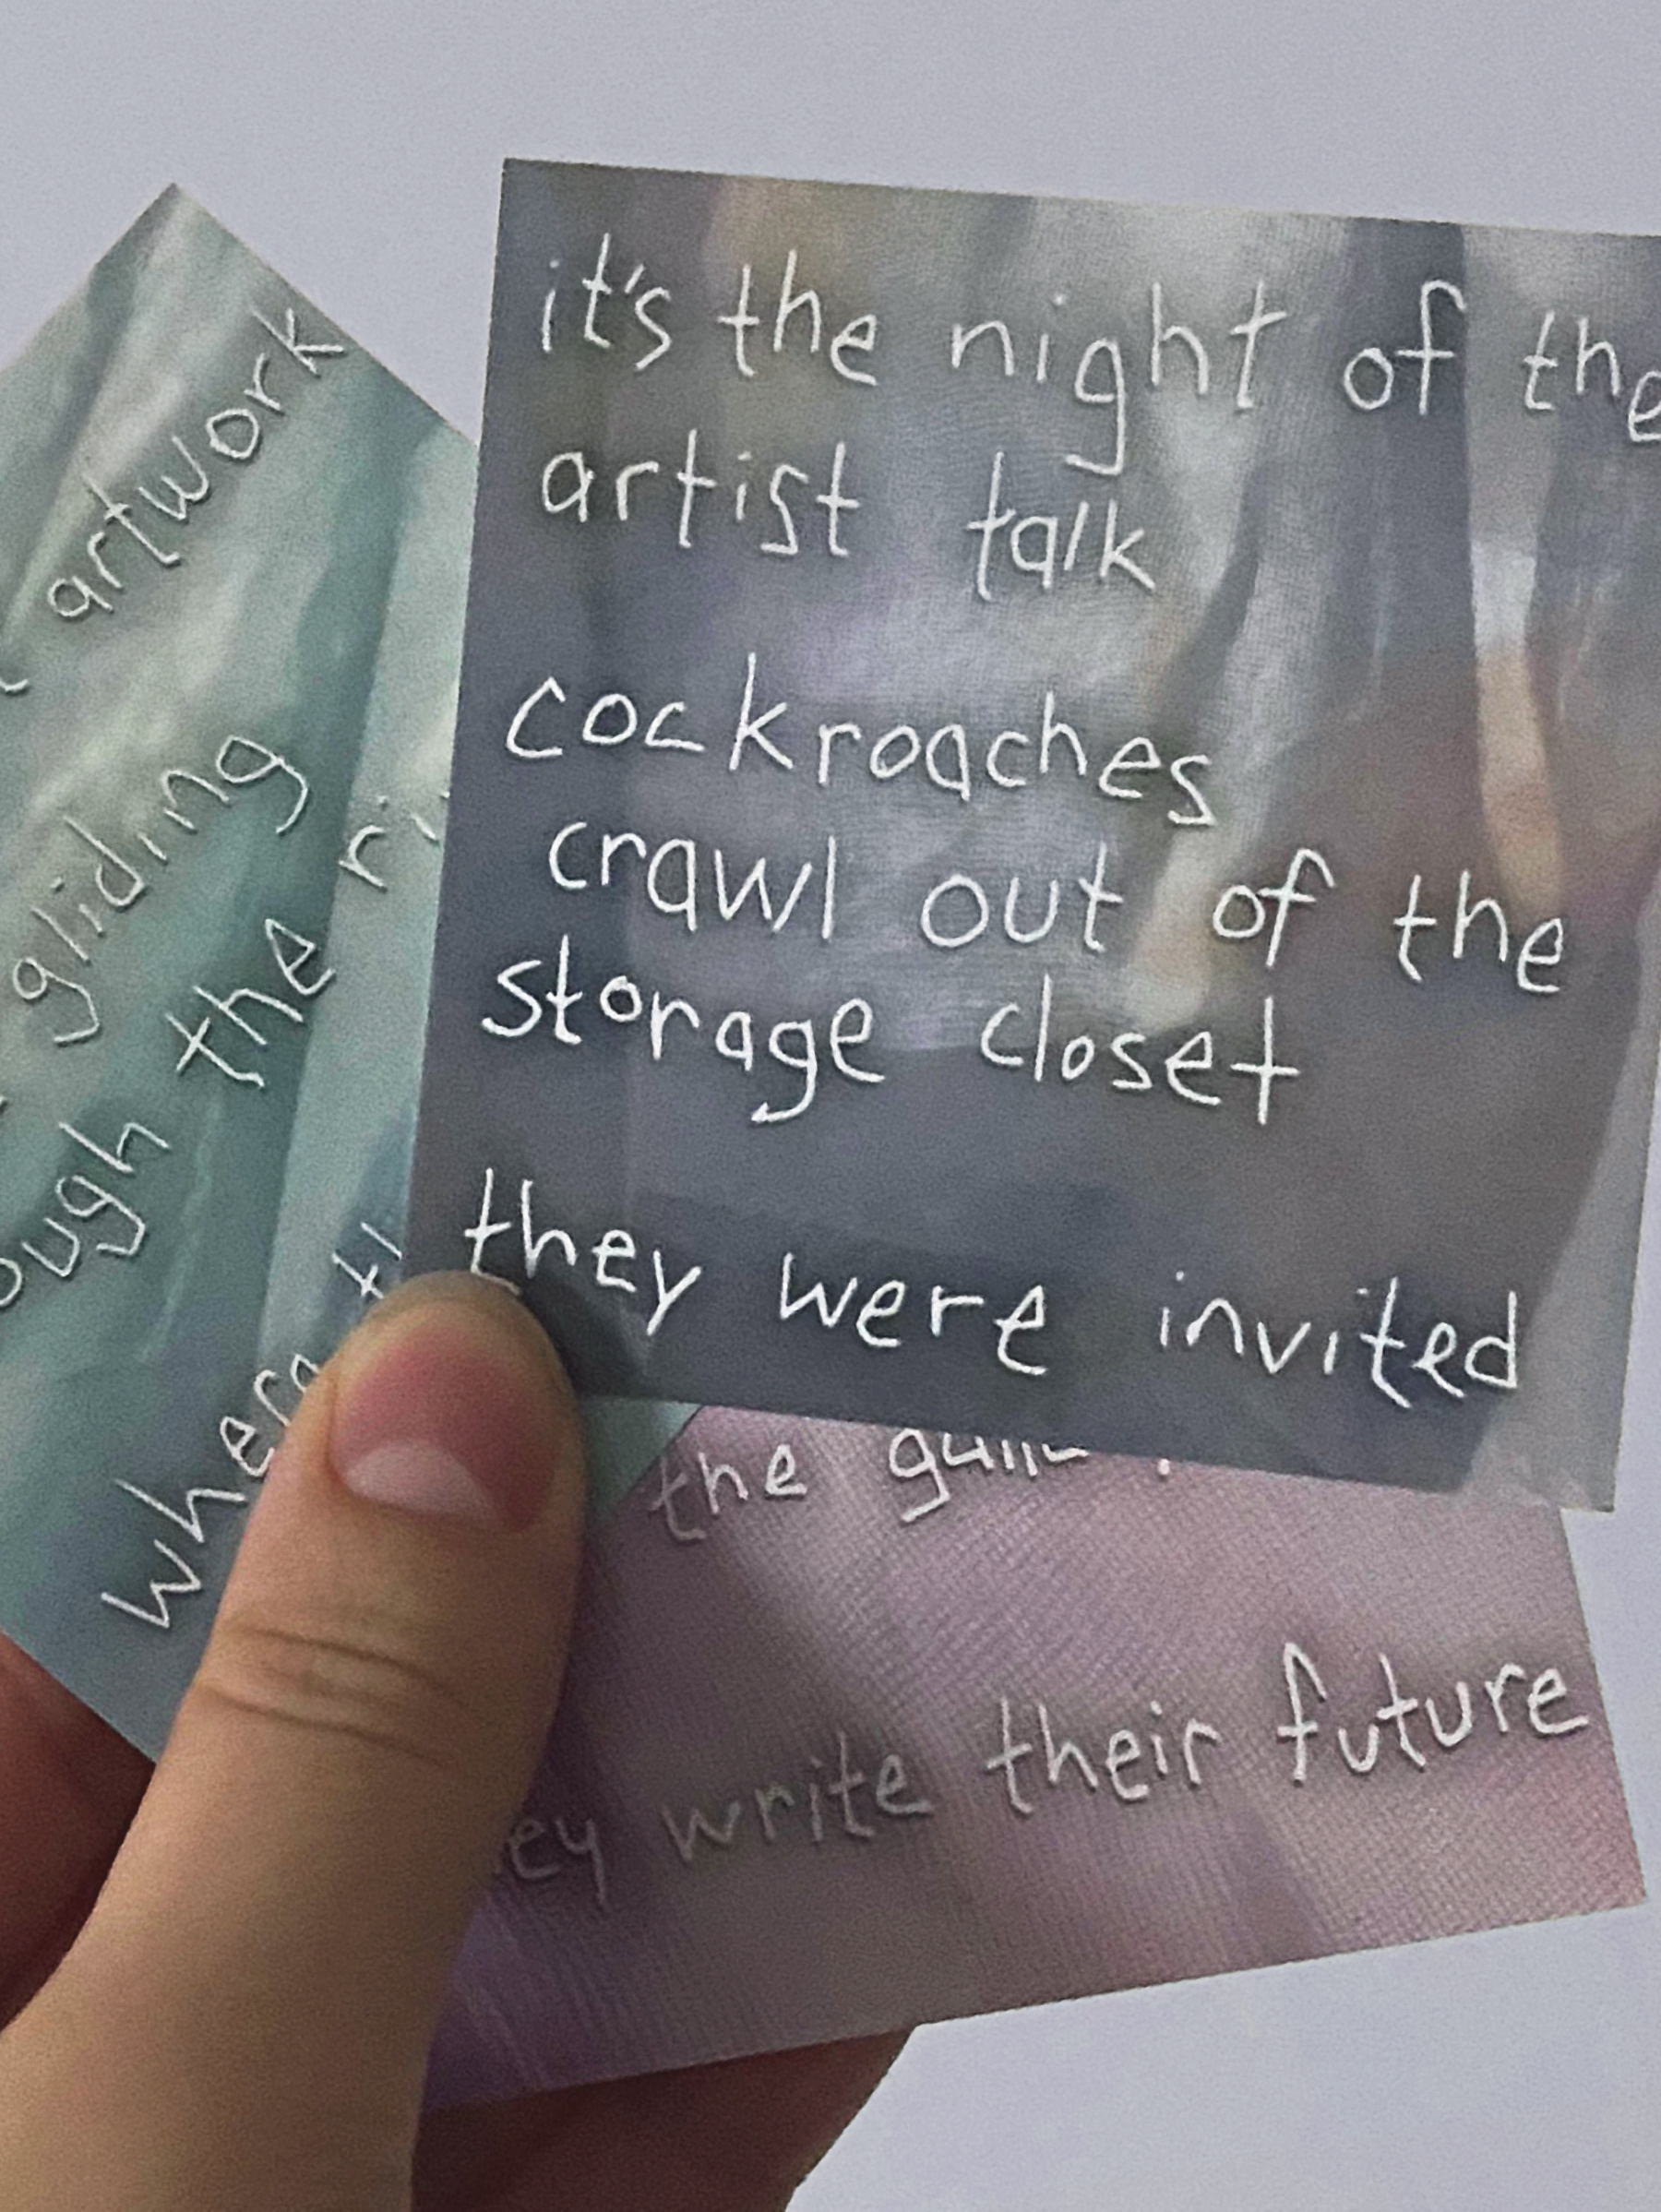 it's the night of the
artist talk
cockroaches
crawl out of the
storage closet
they were invited
artwork
gliding
the
the
write their future